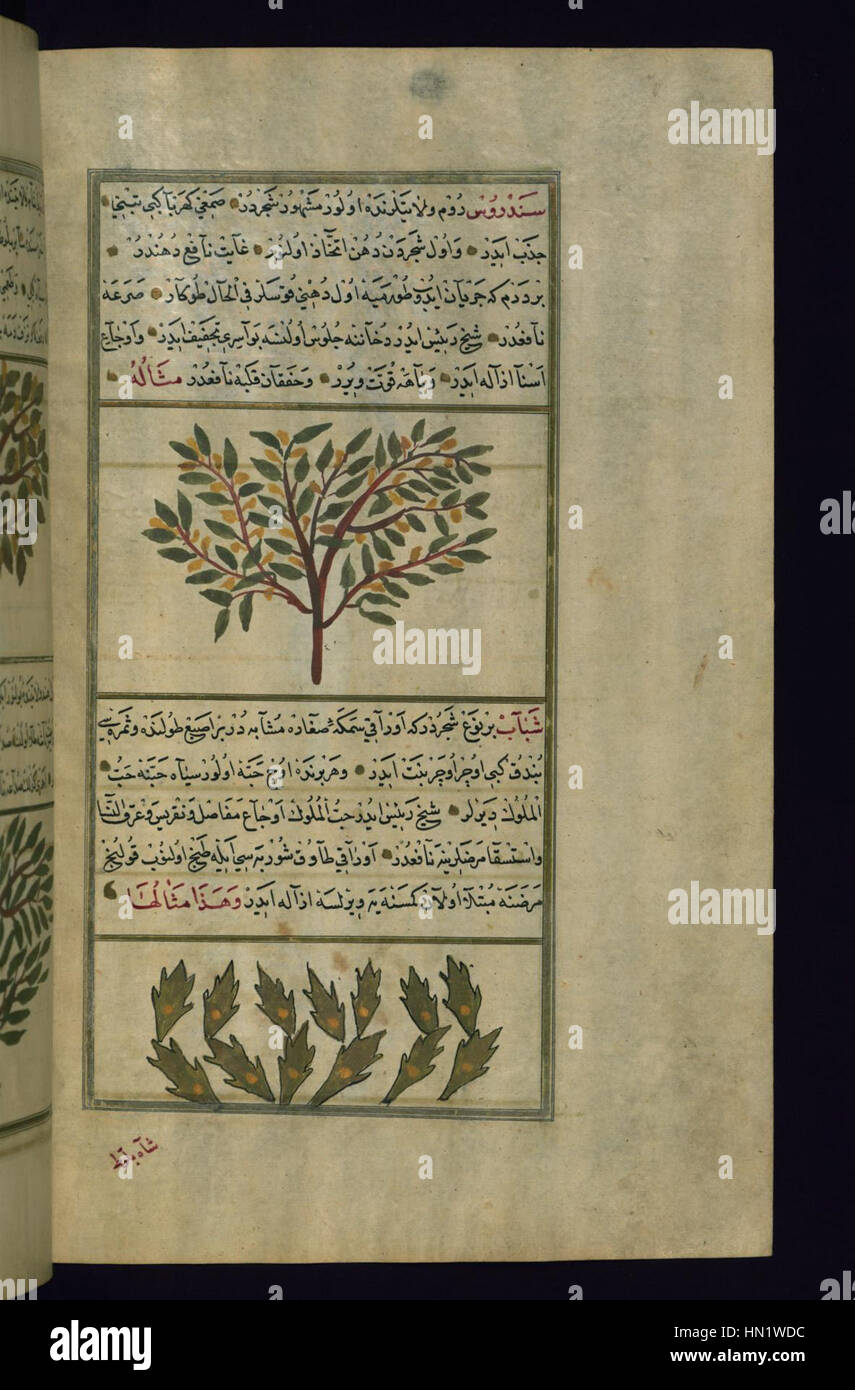 سندروس روم ولايتلرنده اولور مشهور شجردر صمغي كهربا كبي تبني
جذب ايدر و اول شجردن دهن اتخاذ اولنور غايت نافع دهندر
بر دم كه جريان ايدوب طورميه اول دهني قوسلر في الحال طوكار صرعه
نافعدر شيخ رئيس ايدر دخاننه جلوس اولنسه بواسيري تجفيف ايدر و اوجاع
اسنا ازاله ايدر و باهه قوت ويرر و خفقان قلبه نافعدر مثاله
شباب بر نوع شجردر كه اوراقي سمكهٔ صغاره مشابه در بر اصبع طولنده و ثمره سي
بندق كبي اوچر اوچر بنت ايدر و هر برنده اوچ حبه اولور سياه حبنه حب
الملوك ديرلر شيخ رئيس ايدر حب الملوك اوجاع مفاصل و نقريس و عرق النسا
و استسقا مرضلرينه نافعدر اوراقي طاوق شورباسي ايله طبخ اولنوب قولنج
مرضنه مبتلا اولان كمسنه يه ويرلسه ازاله ايدر و هذا مثالها
شاه بلوط
a
alamy
alamy stock photo
HN1WDC
www.alamy.com